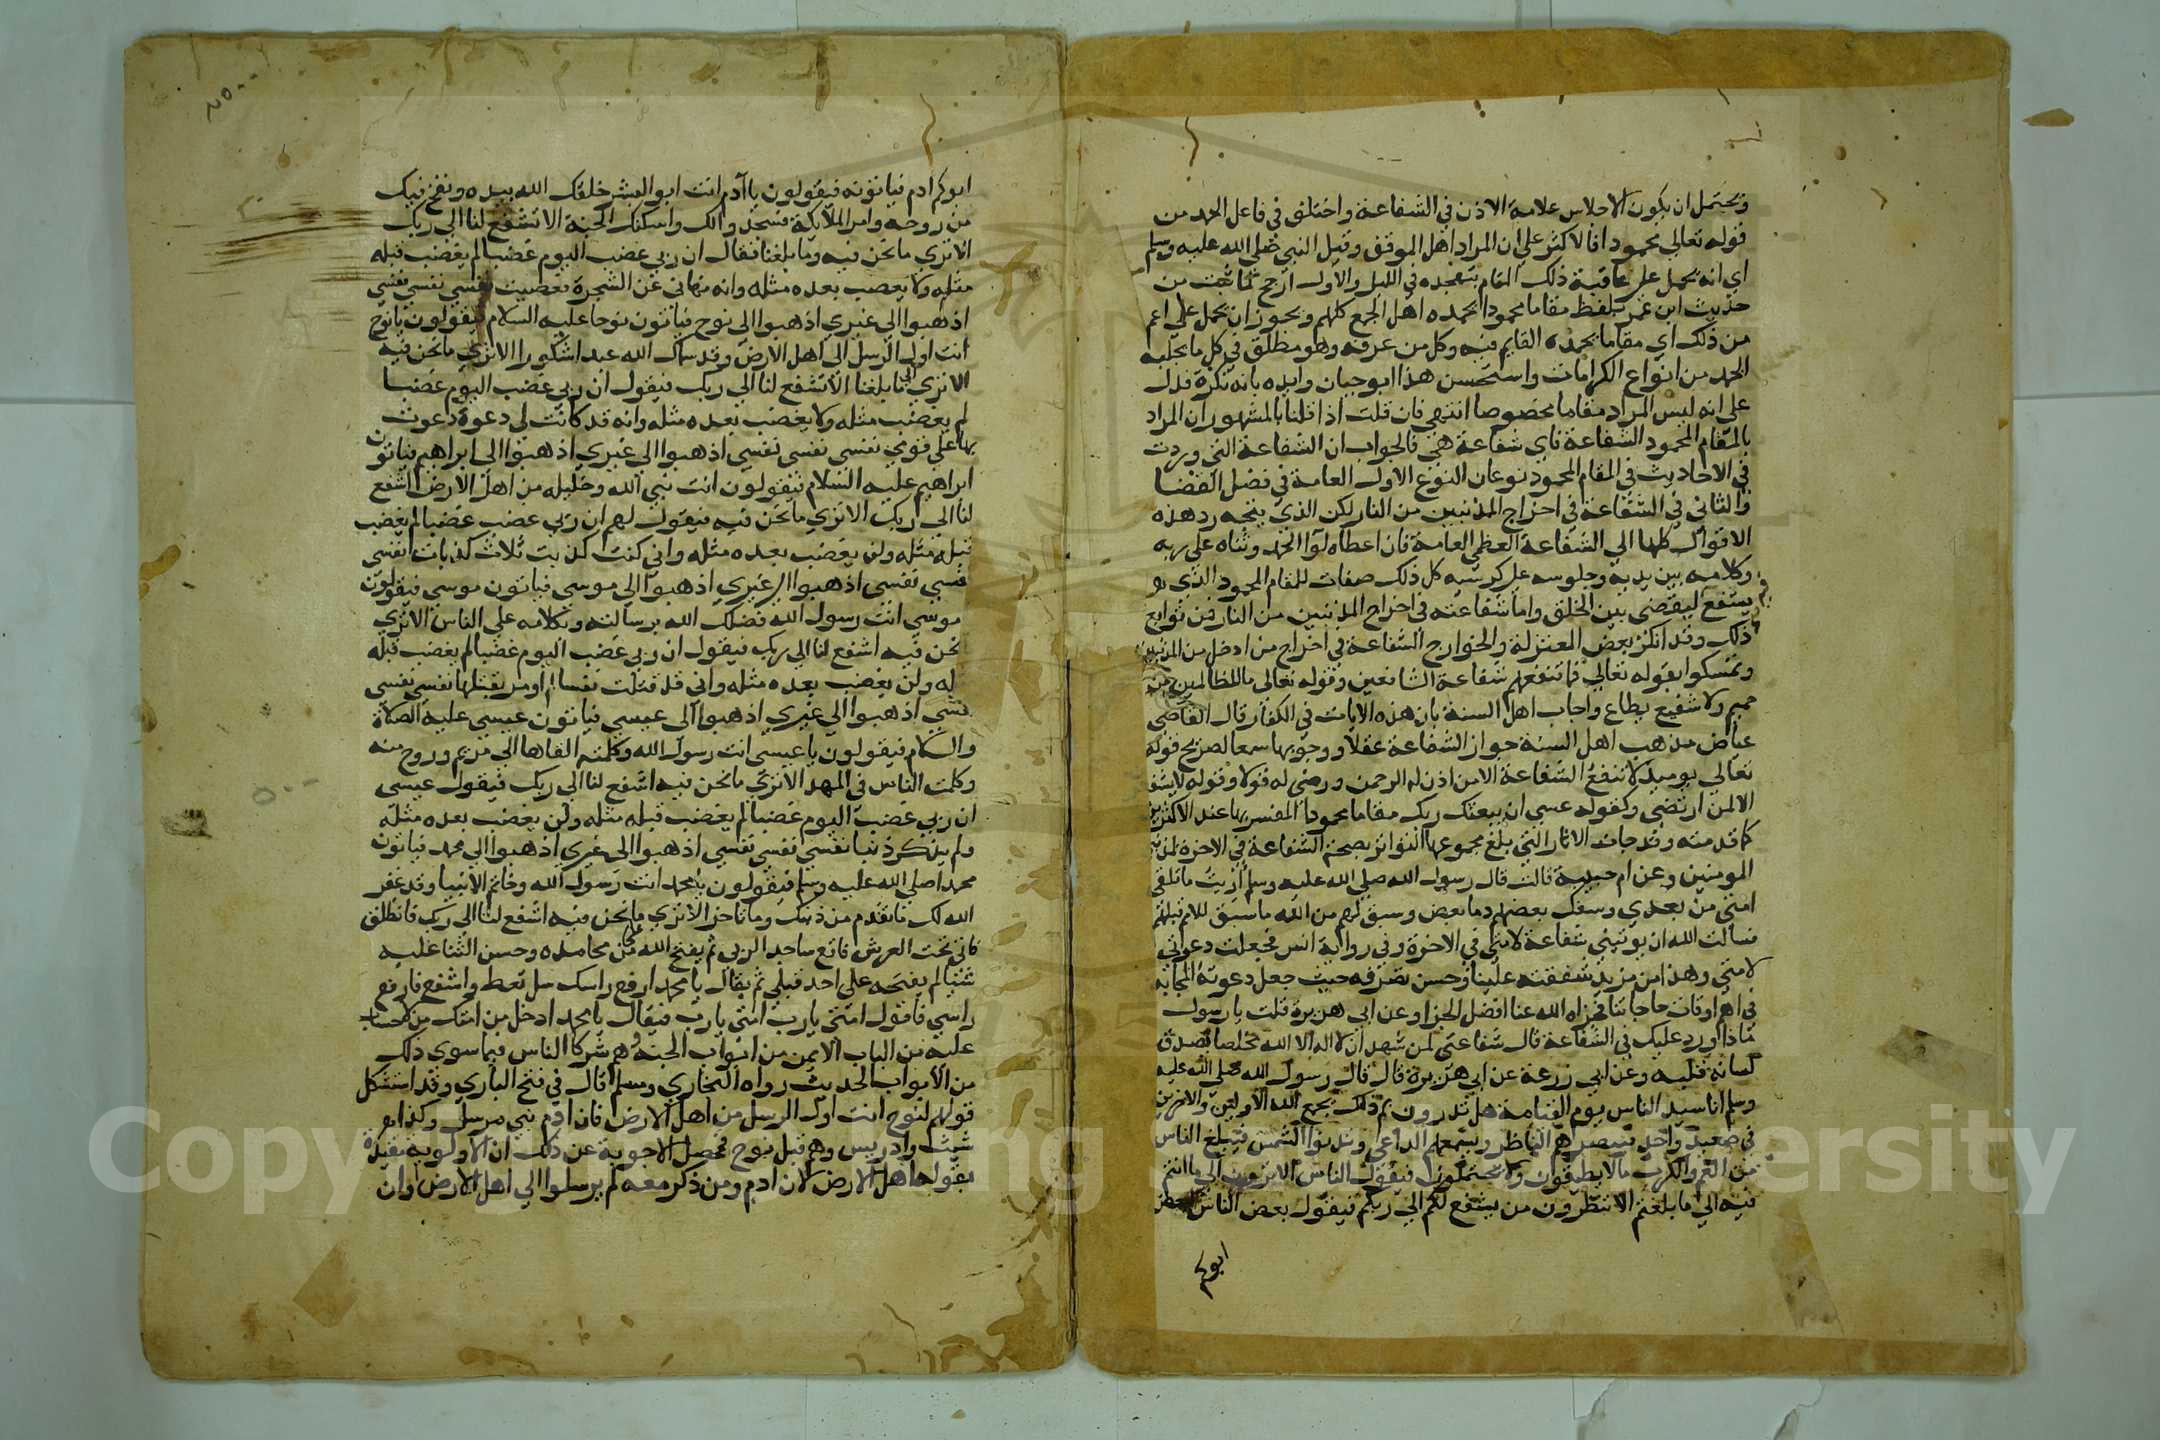 ويحتمل ان يكون الاجلاس علامة الاذن في الشفاعة واختلف في فاعل الحمد من
قوله تعالى محمودا فالاكثر على ان المراد اهل الموقف وقيل النبي صلى الله عليه وسلم
اي انه يحمل على عاقبة ذلك المقام بتهجده في الليل والاول ارجح لما ثبت من
حديث ابن عمر بلفظ مقاما محمودا يحمده اهل الجمع كلهم ويجوز ان يحمل على اعم
من ذلك اي مقاما يحمده القايم فيه وكل من عرفه وهو مطلق في كل ما يجلبه
الحمد من انواع الكرامات واستحسن هذا ابو حيان وايده بانه نكرة فدل
على انه ليس المراد مقاما مخصوصا انتهى فان قلت اذا قلنا بالمشهور ان المراد
بالمقام المحمود الشفاعة فاي شفاعة هي فالجواب ان الشفاعة التي وردت
في الاحاديث في المقام المحمود نوعان النوع الاول العامة في فصل القضا
والثاني في الشفاعة في اخراج المذنبين من النار لكن الذي يتجه رد هذه
الاقوال كلها الى الشفاعة العظمى العامة فان اعطاه لوا الحمد وثناه على ربه
وكلامه بين يديه وجلوسه على كرسيه كل ذلك صفات للمقام المحمود الذي
يشفع ليقضى بين الخلق واما شفاعته في اخراج المذنبين من النار فمن توابع
ذلك وقد انكر بعض المعتزلة والخوارج الشفاعة في اخراج من ادخل من المذنبين
وتمسكوا بقوله تعالى فما تنفعهم شفاعة الشافعين وقوله تعالى ما للظالمين من
حميم ولا شفيع يطاع واجاب اهل السنة بان هذه الايات في الكفار قال القاضي
عياض مذهب اهل السنة جواز الشفاعة عقلا ووجوبها سمعا لصريح قوله
تعالى يوميذ لا تنفع الشفاعة الا من اذن له الرحمن ورضي له قولا وقوله لا يشفعون
الا لمن ارتضى وكقوله عسى ان يبعثك ربك مقاما محمودا المفسر بها عند الاكثرين
كما قدمته وقد جات الاثار التي بلغ مجموعها التواتر بصحة الشفاعة في الاخرة لمذنبي
المومنين وعن ام حبيبة قالت قال رسول الله صلى الله عليه وسلم اريت ما تلقى
امتي من بعدي وسفك بعضهم دما بعض وسبق لهم من الله ما سبق للامم قبلهم
فسالت الله ان يوتيني شفاعة لامتي في الاخرة وفي رواية انس فجعلت دعوتي
لامتي وهذا من مزيد شفقته علينا وحسن تصرفه حيث جعل دعوته المجابة
في اهم اوقات حاجاتنا فجزاه الله عنا افضل الجزا وعن ابي هريرة قلت يا رسول
ماذا ورد عليك في الشفاعة قال شفاعتي لمن شهد ان لا اله الا الله مخلصا يصدق
لسانه قلبه وعن ابي زرعة عن ابي هريرة قال قال رسول الله صلى الله عليه
وسلم انا سيد الناس يوم القيامة هل تدرون مم ذلك يجمع الله الاولين والاخرين
في صعيد واحد فيبصرهم الناظر ويسمعهم الداعي وتدنوا الشمس فيبلغ الناس
من الغم والكرب ما لا يطيقون ولا يحتملون فيقول الناس الا ترون الى ما انتم
فيه الى ما بلغتم الا تنظرون من يشفع لكم الى ربكم فيقول بعض الناس لبعض
ابوكم
٧٥٠٠
ابوكم ادم فياتونه فيقولون يا آدم انت ابو البشر خلقك الله بيده ونفخ فيك
من روحه وامر الملايكة فسجدوا لك واسكنك الجنة الا تشفع لنا الى ربك
الا ترى ما نحن فيه وما بلغنا فقال ان ربي غضب اليوم غضبا لم يغضب قبله
مثله ولا يغضب بعده مثله وانه نهاني عن الشجرة فعصيت نفسي نفسي نفسي
اذهبوا الى غيري اذهبوا الى نوح فياتون نوحا عليه السلام فيقولون يا نوح
انت اول الرسل الى اهل الارض وقد سماك الله عبدا شكورا الا ترى ما نحن فيه
الا ترى الى ما بلغنا الا تشفع لنا الى ربك فيقول ان ربي غضب اليوم غضبا
لم يغضب مثله ولا يغضب بعده مثله وانه قد كانت لي دعوة دعوت
بها على قومي نفسي نفسي نفسي اذهبوا الى غيري اذهبوا الى ابراهيم فياتون
ابراهيم عليه السلام فيقولون انت نبي الله وخليله من اهل الارض اشفع
لنا الى ربك الا ترى ما نحن فيه فيقول لهم ان ربي غضب غضبا لم يغضب
قبله مثله ولن يغضب بعده مثله واني كنت كذبت ثلاث كذبات نفسي
نفسي نفسي اذهبوا الى غيري اذهبوا الى موسى فياتون موسى فيقولون
موسى انت رسول الله فضلك الله برسالته وبكلامه على الناس الا ترى
نحن فيه اشفع لنا الى ربك فيقول ان ربي غضب اليوم غضبا لم يغضب قبله
له ولن يغضب بعده مثله واني قد قتلت نفسا لم اومر بقتلها نفسي نفسي
نفسي اذهبوا الى غيري اذهبوا الى عيسى فياتون عيسى عليه الصلاة
والسلام فيقولون يا عيسى انت رسول الله وكلمته القاها الى مريم وروح منه
وكلمت الناس في المهد الا ترى ما نحن فيه اشفع لنا الى ربك فيقول عيسى
ان ربي غضب اليوم غضبا لم يغضب قبله مثله ولن يغضب بعده مثله
ولم يذكر ذنبا نفسي نفسي نفسي اذهبوا الى غيري اذهبوا الى محمد فياتون
محمدا صلى الله عليه وسلم فيقولون يا محمد انت رسول الله وخاتم الانبيا وقد غفر
الله لك ما تقدم من ذنبك وما تاخر الا ترى ما نحن فيه اشفع لنا الى ربك فانطلق
فاتي تحت العرش فاقع ساجدا لربي ثم يفتح الله علي من محامده وحسن الثنا عليه
شيئا لم يفتحه على احد قبلي ثم يقال يا محمد ارفع راسك سل تعط واشفع فارفع
راسي فاقول امتي يا رب امتي يا رب فيقال يا محمد ادخل من امتك من لا حساب
عليه من الباب الايمن من ابواب الجنة وهم شركا الناس فيما سوى ذلك
من الابواب الحديث رواه البخاري ومسلم قال في فتح الباري وقد استشكل
قولهم لنوح انت اول الرسل من اهل الارض فان ادم نبي مرسل وكذا
شيث وادريس وهم قبل نوح فمحصل الاجوبة عن ذلك ان الاولوية مقيدة
بقولها اهل الارض لان ادم ومن ذكر معه لم يرسلوا الى اهل الارض وان